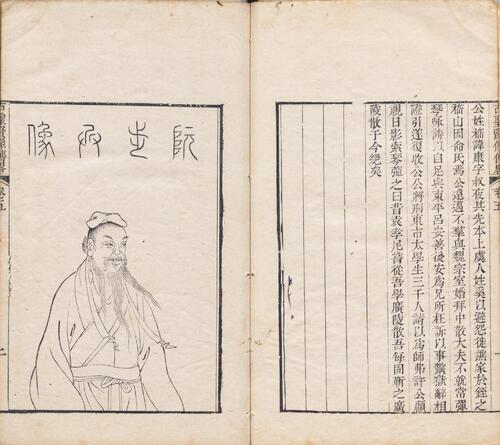 公姓嵇諱康字叔夜其先本上虞人姓奚以避怨徙譙家於銍之
嵇山因命氏焉公遠邁不羣與魏宗室婚拜中散大夫不就常彈
琴咏詩以自足與東平呂安善後安為兄所枉訴以事繫獄辭相
證引遂復收公公將刑東市太學生三千人請以為師弗許公顧
視日影索琴彈之曰昔袁孝尼嘗從吾學廣陵散吾每固靳之廣
陵散于今絕矣
阮步兵像